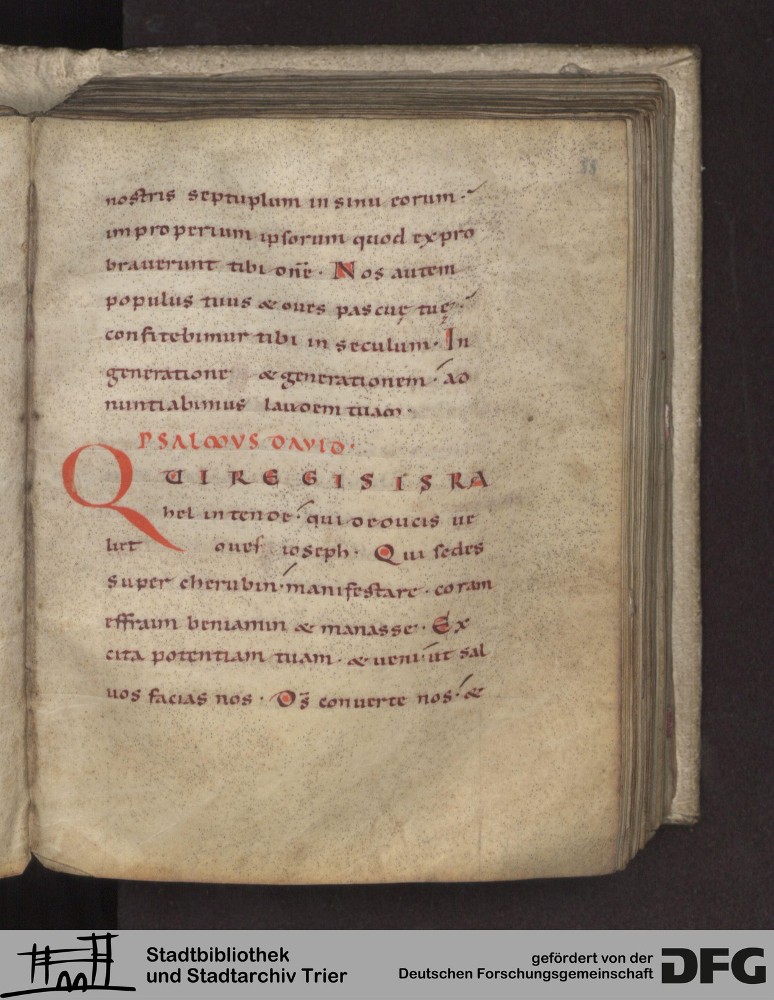 55
nostris septuplum in sinu eorum.
improperium ipsorum quod expro
brauerunt tibi dn̄e. Nos autem
populus tuus & oues pascuę tuę.
confitebimur tibi in seculum. In
generatione & generationem. ad
nuntiabimus laudem tuam.
PSALMUS DAVID.
QUI REGIS ISRA
hel intende. qui deducis ue
lut oues ioseph. Qui sedes
super cherubin. manifestare. coram
effraim beniamin & manasse. Ex
cita potentiam tuam. & ueni ut sal
uos facias nos. Dˉs conuerte nos. &
Stadtbibliothek
und Stadtarchiv Trier
gefördert von der
Deutschen Forschungsgemeinschaft
DFG